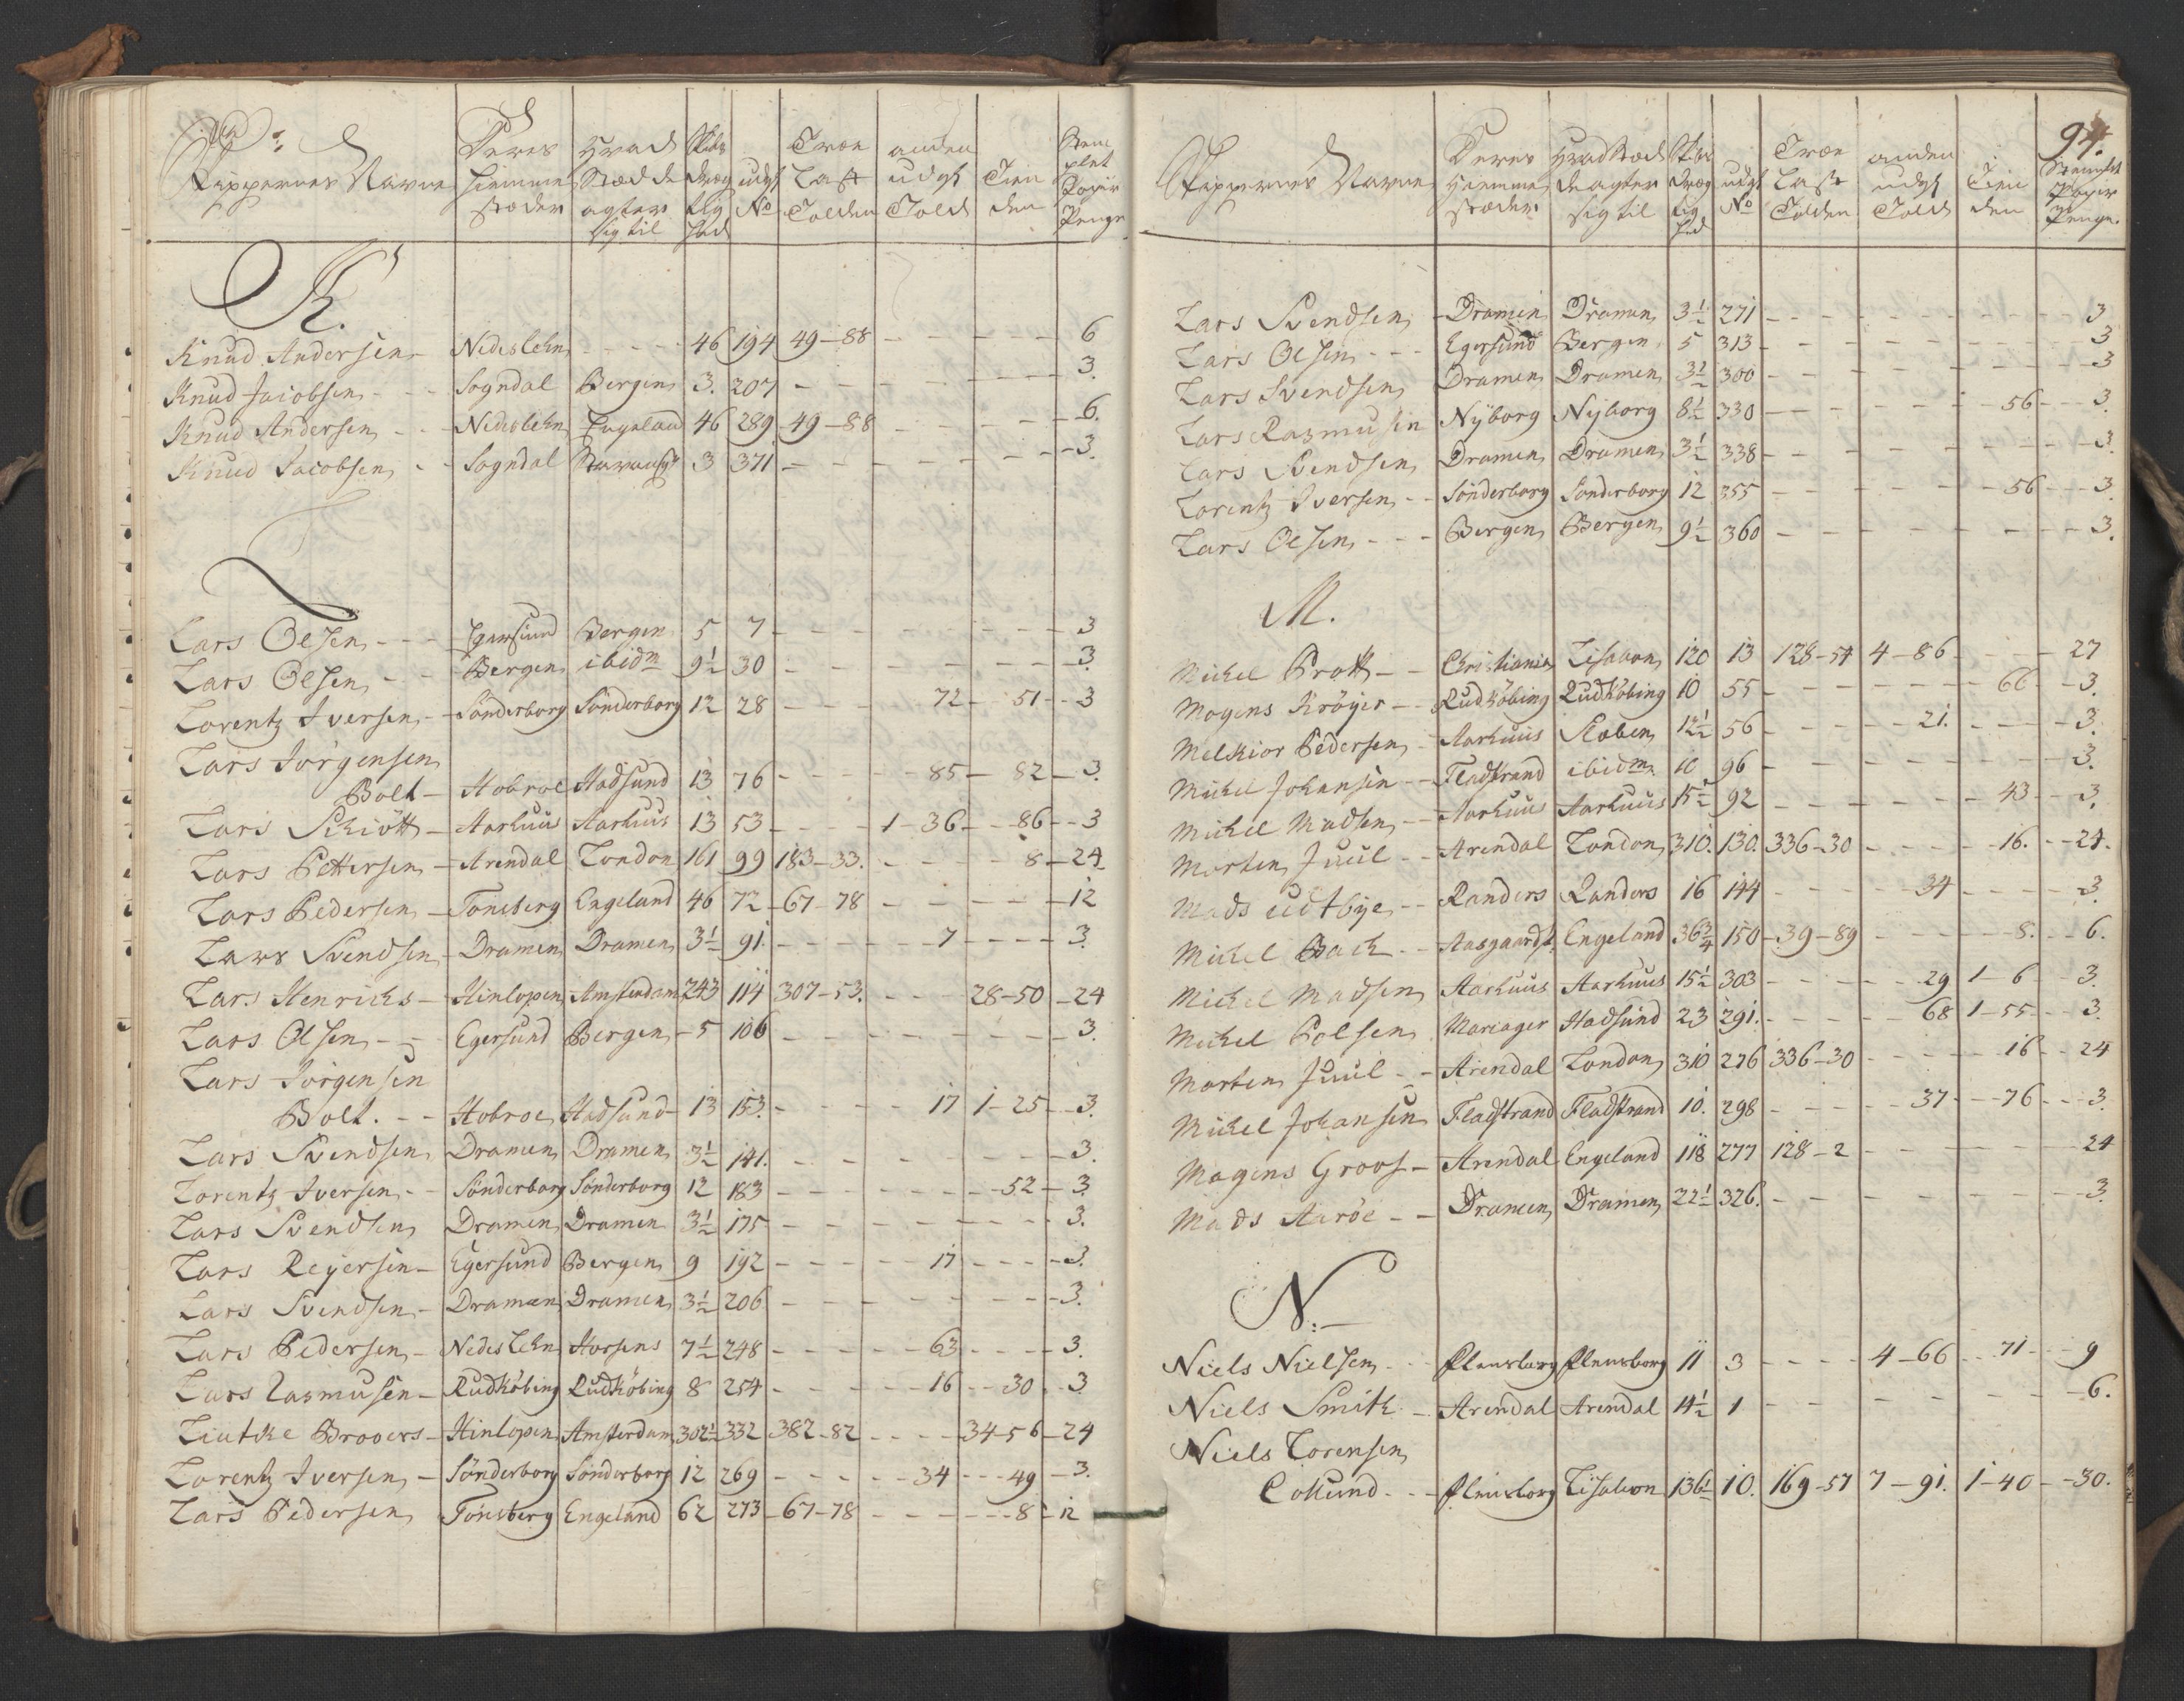 Skippernes Navne | Deres Hiemme stæder | Hvad Stæd de agter sig til | Skibs Dræg tig hed | udgl No | Træe Last Tolden | anden udgl Told | Tien den | Stem plet Papir Penge
K.
Knud Andersen - Nedeslehn - - - - 46 194 49-88 - - - - - 6
Knud Jacobsen - - Sogndal Bergen 3. 207 - - - - - - 3.
Knud Andersen - - Nedeslehn Engeland 46 289 49-88 - - - - 6.
Knud Jacobsen - - Sogndal Stavanger 3 371 - - - - - - 3.
L
Lars Olsen - - - Egersund Bergen 5 7 - - - - - - 3
Lars Olsen - - Bergen ibidm 9½ 30 - - - - - - 3.
Lorentz Iversen - Sönderborg Sönderborg 12 28 - - - 72 - 51 - 3
Lars Jörgensen
Bolt - Hobroe Hadsund 13 76 - - - - 85 - 82 - 3.
Lars Schiött - Aarhuus Aarhuus 13 53 - - - 1-36 - - 86 - - 3
Lars Pettersen - Arendal London 161 99 183-33. - - - - 8 - 24
Lars Pedersen - Tonsberg Engeland 46 72 67-78 - - - - 12
Lars Svendsen - Dramen Dramen 3½ 91. - - - - 7 - - - - 3.
Lars Henrichs - Hinlopen Amsterdam 243 114 307-53. - - - 28-50 - 24
Lars Olsen - - Egersund Bergen - 5 106 - - - - - - 3.
Lars Jörgensen
Bolt. - - Hobroe Hadsund 13 153. - - - - 17 1-25 - 3.
Lars Svendsen Dramen Dramen 3½ 141. - - - - - - 3.
Lorentz Iversen - - Sönderborg Sönderborg 12 183 - - - - - - 52 - 3
Lars Svendsen Dramen Dramen 3½ 175 - - - - - - 3.
Lars Reyersen - Egersund Bergen 9 192 - - - - - 17 - - - - 3.
Lars Svendsen - Dramen Dramen 3½ 206 - - - - - - 3.
Lars Pedersen - Nedes Lehn Horsens 7½ 248 - - - - 63 - - - - 3.
Lars Rasmusen - Rudköbing Rudköbing 8 254 - - - - - 16 - - 30 - 3
Liutche Brooers - Hinlopen Amsterdam 302½ 332 382-82 - - - - 34-56 - 24
Lorentz Iversen - Sönderborg Sönderborg 12 269 - - - - - 34 - - - 49 - 3.
Lars Pedersen Tonsberg Engeland 62 273 67-78 - - - - - - 8 - 12
94.
Skippernes Navne | Deres Hiemme stæder | Hvad Stæd de agter sig til | Skibs Dræg tig hed | udgl No | Træe Last Tolden | anden udgl Told | Tien den | Stemplet Papir Penge.
Lars Svendsen - Dramen Dramen 3½ 271 - - - - - - 3
Lars Olsen - - - Egersund Bergen 5 313 - - - - - - 3
Lars Svendsen Dramen Dramen 3½ 300 - - - - - - 3
Lars Rasmusen Nyborg Nyborg 8½ 330 - - - - - - 56 - - 3.
Lars Svendsen Dramen Dramen 3½ 338 - - - - - - 3.
Lorentz Iversen - - Sönderborg Sönderborg 12 355 - - - - - - 56 - - 3.
Lars Olsen - - - Bergen Bergen 9½ 360 - - - - - - 3.
M.
Michel Prott - - Christiania Lisabon 120 13 128-54 4-86 - - - - 27
Mogens Kröyer - - Rudköbing Rudköbing 10 55 - - - - - - 66 - - 3.
Melkior Pedersen - Aarhuus 12½ 56 - - - - 21. - - - - 3.
Michel Johansen - - Fladstrand ibidm. 10 96 - - - - - - 3.
Michel Madsen - - Aarhuus Aarhuus 15½ 92 - - - - - - 43 - - 3.
Morten Juul - - Arendal London 310. 130. 336-30 - - - - - 16. - - 24.
Mads udtbye - - Randers Randers 16 144 - - - - 34 - - - - 3
Michel Back - - Aasgaardst. Engeland 36¾ 150 39-89 - - - - - 8. - - 6.
Michel Madsen Aarhuus Aarhuus 15½ 303 - - - - - 29 1-6 - 3.
Michel Polsen Mariager Hadsund 23 291. - - - - 68 1-55 - - 3.
Morten Juul - - Arendal London 310 276 336-30 - - - - - 16 - - 24
Michel Johansen Fladstrand Fladstrand 10. 298 - - - - - 37 - - 76 - - - 3.
Magens Groos - Arendal Engeland 118 277 128-2 - - - - - 24
Mads Aaröe - - Dramen Dramen 22½ 326. - - - - - - 3.
N.
Niels Nielsen - - - Flensborg Flensborg 11 3 - - - - 4-66 - - 71 - - 9
Niels Smith - Arendal Arendal 4½ 1 - - - - - - 6.
Niels Lorensen
Collund - - - Flensborg Lisabon 136½ 10. 169-57 7-91. 1-40 - - 30.